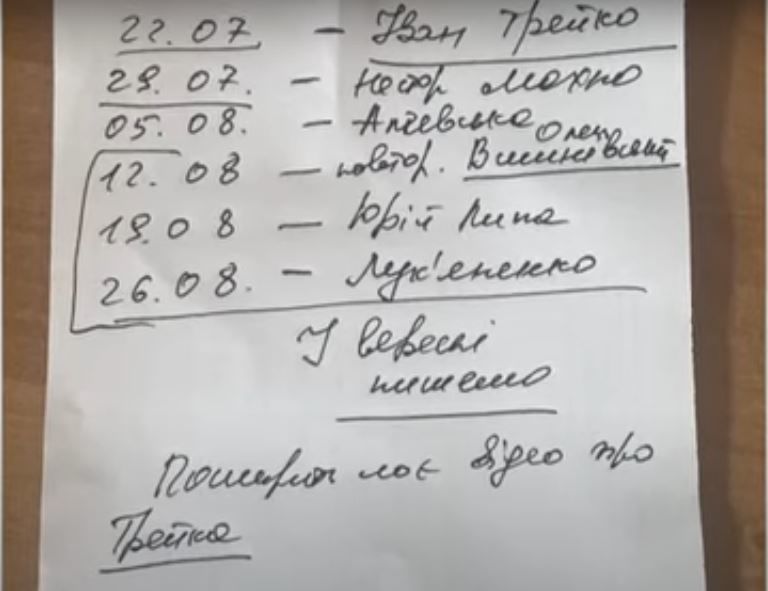 22.07. – Іван Трейко
29.07. – Нестор Махно
05.08. – Алчевська Олена
12.08 – повтор. Вишнівський
19.08 – Юрій Липа
26.08. – Лук'яненко
У вересні
пишемо
моє відео про
Трейка